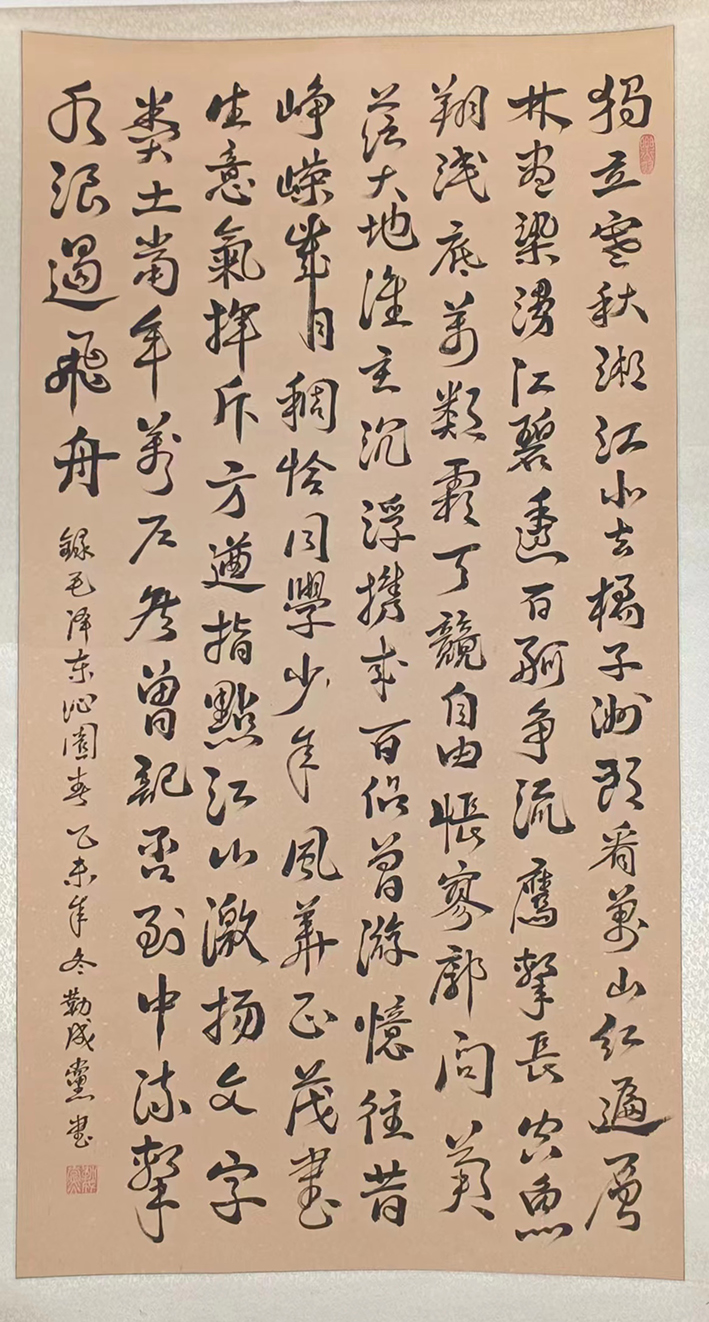 獨立寒秋湘江北去橘子洲頭看萬山紅遍層
林盡染漫江碧透百舸争流鷹擊長空魚
翔浅底萬類霜天競自由悵寥廓問蒼
茫大地誰主沉浮携来百侣曾游憶往昔
崢嶸歲月稠恰同學少年風華正茂書
生意氣揮斥方遒指點江山激揚文字
糞土當年萬户侯曾記否到中流擊
水浪遏飛舟
録毛泽东沁園春乙未年冬成黨書